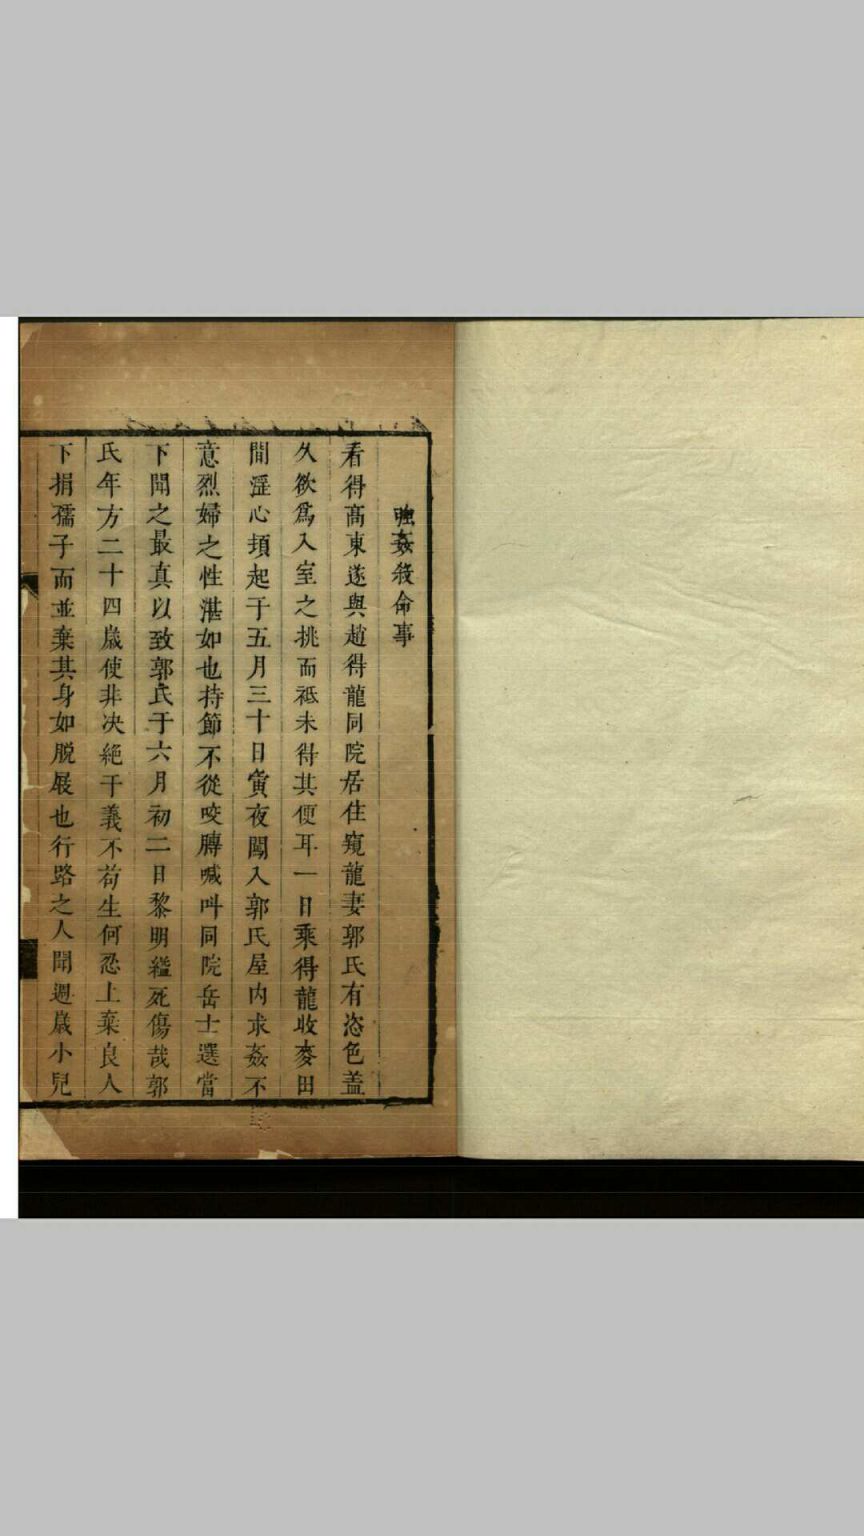 強姦殺命事
看得高東遂與趙得龍同院居住窺龍妻郭氏有姿色蓋
久欲爲入室之挑而祗未得其便耳一日乘得龍收麥田
間淫心頓起于五月三十日寅夜闖入郭氏屋内求姦不
意烈婦之性湛如也持節不從咬膊喊叫同院岳士選當
下聞之最真以致郭氏于六月初二日黎明縊死傷哉郭
氏年方二十四歲使非决絕于義不苟生何忍上棄良人
下捐孺子而並棄其身如脫屣也行路之人聞週歲小兒